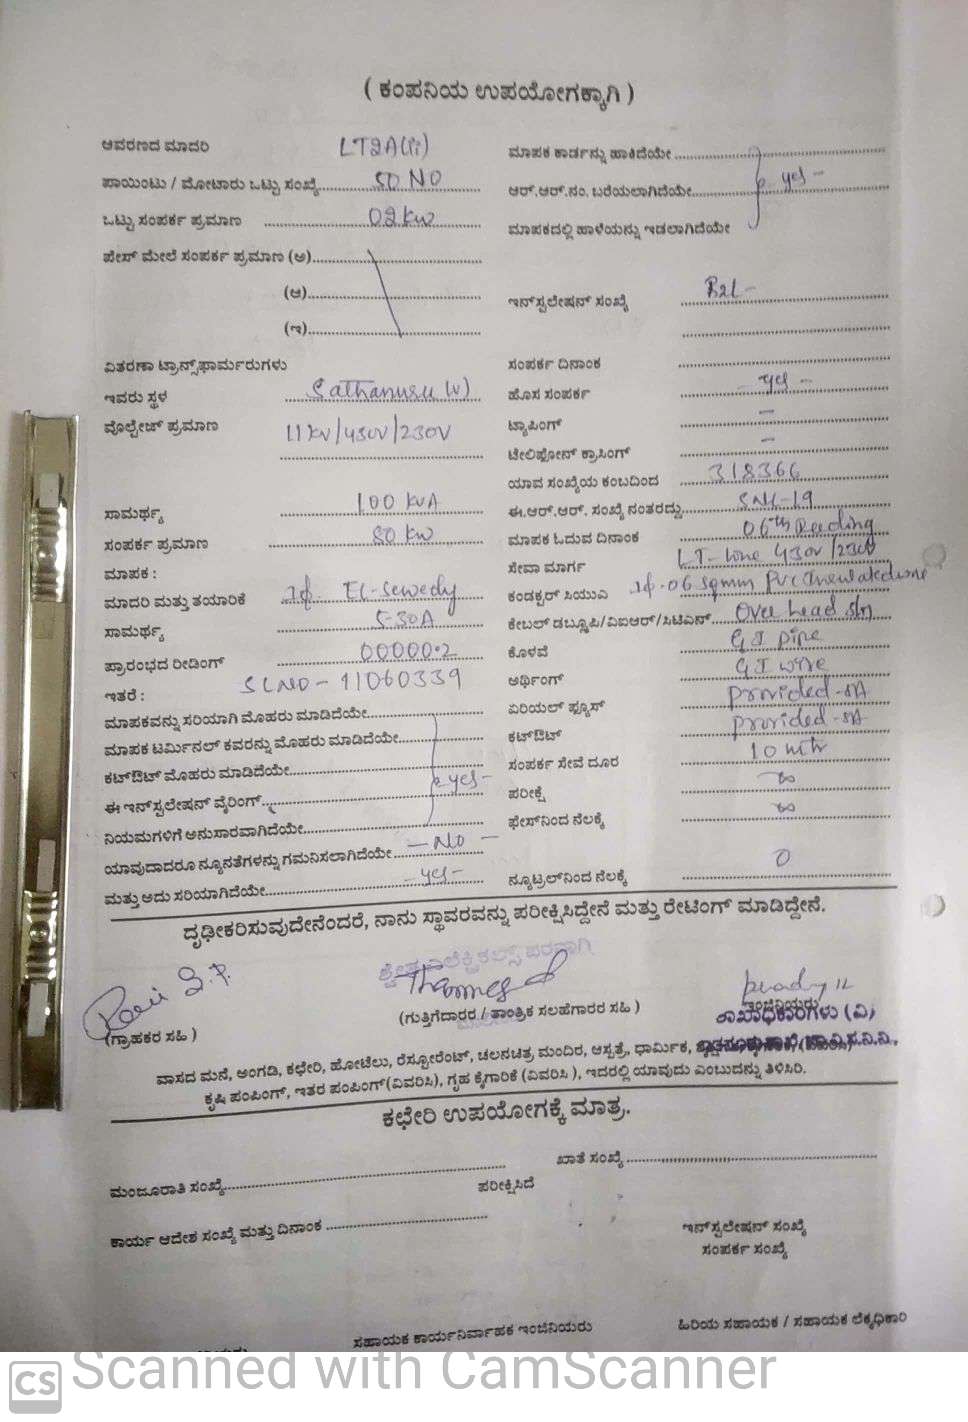 ( ಕಂಪನಿಯ ಉಪಯೋಗಕ್ಕಾಗಿ )
ಆವರಣದ ಮಾದರಿ LT2A(ii)
ಪಾಯಿಂಟು / ಮೋಟಾರು ಒಟ್ಟು ಸಂಖ್ಯೆ NO
ಒಟ್ಟು ಸಂಪರ್ಕ ಪ್ರಮಾಣ 02 kw
ಫೇಸ್ ಮೇಲೆ ಸಂಪರ್ಕ ಪ್ರಮಾಣ (ಅ)
(ಆ)
(ಇ)
ವಿತರಣಾ ಟ್ರಾನ್ಸ್‌ಫಾರ್ಮರುಗಳು
ಇವರು ಸ್ಥಳ Sathanuru (v)
ವೊಲ್ಟೇಜ್ ಪ್ರಮಾಣ 11 kV/430V/230V
ಸಾಮರ್ಥ್ಯ 100 KVA
ಸಂಪರ್ಕ ಪ್ರಮಾಣ 80 kw
ಮಾಪಕ :
ಮಾದರಿ ಮತ್ತು ತಯಾರಿಕೆ 1ϕ EL-Sewedy
ಸಾಮರ್ಥ್ಯ 5-30A
ಪ್ರಾರಂಭದ ರೀಡಿಂಗ್ 00000.2
ಇತರೆ : SLNO - 11060339
ಮಾಪಕವನ್ನು ಸರಿಯಾಗಿ ಮೊಹರು ಮಾಡಿದೆಯೇ
ಮಾಪಕ ಟರ್ಮಿನಲ್ ಕವರನ್ನು ಮೊಹರು ಮಾಡಿದೆಯೇ
ಕಟ್‌ಔಟ್ ಮೊಹರು ಮಾಡಿದೆಯೇ yes -
ಈ ಇನ್‌ಸ್ಟಲೇಷನ್ ವೈರಿಂಗ್
ನಿಯಮಗಳಿಗೆ ಅನುಸಾರವಾಗಿದೆಯೇ
ಯಾವುದಾದರೂ ನ್ಯೂನತೆಗಳನ್ನು ಗಮನಿಸಲಾಗಿದೆಯೇ - No -
ಮತ್ತು ಅದು ಸರಿಯಾಗಿದೆಯೇ - yes -
ಮಾಪಕ ಕಾರ್ಡನ್ನು ಹಾಕಿದೆಯೇ
ಆರ್.ಆರ್.ನಂ. ಬರೆಯಲಾಗಿದೆಯೇ yes -
ಮಾಪಕದಲ್ಲಿ ಹಾಳೆಯನ್ನು ಇಡಲಾಗಿದೆಯೇ
ಇನ್‌ಸ್ಟಲೇಷನ್ ಸಂಖ್ಯೆ
ಸಂಪರ್ಕ ದಿನಾಂಕ
ಹೊಸ ಸಂಪರ್ಕ - yes -
ಟ್ಯಾಪಿಂಗ್ -
ಟೇಲಿಫೋನ್ ಕ್ರಾಸಿಂಗ್ -
ಯಾವ ಸಂಖ್ಯೆಯ ಕಂಬದಿಂದ 318366
ಈ.ಆರ್.ಆರ್. ಸಂಖ್ಯೆ ನಂತರದ್ದು
ಮಾಪಕ ಓದುವ ದಿನಾಂಕ 06th Reeding
ಸೇವಾ ಮಾರ್ಗ LT-line 430v /230v
ಕಂಡಕ್ಟರ್ ಸಿಯುಎ 1ϕ-06 sqmm PVC Insulated wire
ಕೇಬಲ್ ಡಬ್ಲೂಪಿ/ವಿಐಆರ್/ಸಿಟಿಎನ್ Over head
ಕೊಳವೆ G I pipe
ಅರ್ಥಿಂಗ್ G I wire
ಏರಿಯಲ್ ಫ್ಯೂಸ್ provided - 5A
ಕಟ್‌ಔಟ್ provided - 5A
ಸಂಪರ್ಕ ಸೇವೆ ದೂರ 10 mtr
ಪರೀಕ್ಷೆ ∞
ಫೇಸ್‌ನಿಂದ ನೆಲಕ್ಕೆ ∞
ನ್ಯೂಟ್ರಲ್‌ನಿಂದ ನೆಲಕ್ಕೆ 0
ದೃಢೀಕರಿಸುವುದೇನೆಂದರೆ, ನಾನು ಸ್ಥಾವರವನ್ನು ಪರೀಕ್ಷಿಸಿದ್ದೇನೆ ಮತ್ತು ರೇಟಿಂಗ್ ಮಾಡಿದ್ದೇನೆ.
(ಗ್ರಾಹಕರ ಸಹಿ )
(ಗುತ್ತಿಗೆದಾರರ / ತಾಂತ್ರಿಕ ಸಲಹೆಗಾರರ ಸಹಿ )
ಇಂಜಿನಿಯರು
ಶಾಖಾಧಿಕಾರಿಗಳು (ವಿ)
ವಾಸದ ಮನೆ, ಅಂಗಡಿ, ಕಛೇರಿ, ಹೋಟೆಲು, ರೆಸ್ಟೋರೆಂಟ್, ಚಲನಚಿತ್ರ ಮಂದಿರ, ಆಸ್ಪತ್ರೆ, ಧಾರ್ಮಿಕ,
ಕೃಷಿ ಪಂಪಿಂಗ್, ಇತರ ಪಂಪಿಂಗ್(ವಿವರಿಸಿ), ಗೃಹ ಕೈಗಾರಿಕೆ (ವಿವರಿಸಿ ), ಇದರಲ್ಲಿ ಯಾವುದು ಎಂಬುದನ್ನು ತಿಳಿಸಿರಿ.
ಕಛೇರಿ ಉಪಯೋಗಕ್ಕೆ ಮಾತ್ರ.
ಮಂಜೂರಾತಿ ಸಂಖ್ಯೆ
ಖಾತೆ ಸಂಖ್ಯೆ
ಪರೀಕ್ಷಿಸಿದೆ
ಕಾರ್ಯ ಆದೇಶ ಸಂಖ್ಯೆ ಮತ್ತು ದಿನಾಂಕ
ಇನ್‌ಸ್ಟಲೇಷನ್ ಸಂಖ್ಯೆ
ಸಂಪರ್ಕ ಸಂಖ್ಯೆ
ಸಹಾಯಕ ಕಾರ್ಯನಿರ್ವಾಹಕ ಇಂಜಿನಿಯರು
ಹಿರಿಯ ಸಹಾಯಕ / ಸಹಾಯಕ ಲೆಕ್ಕಧಿಕಾರಿ
CS Scanned with CamScanner